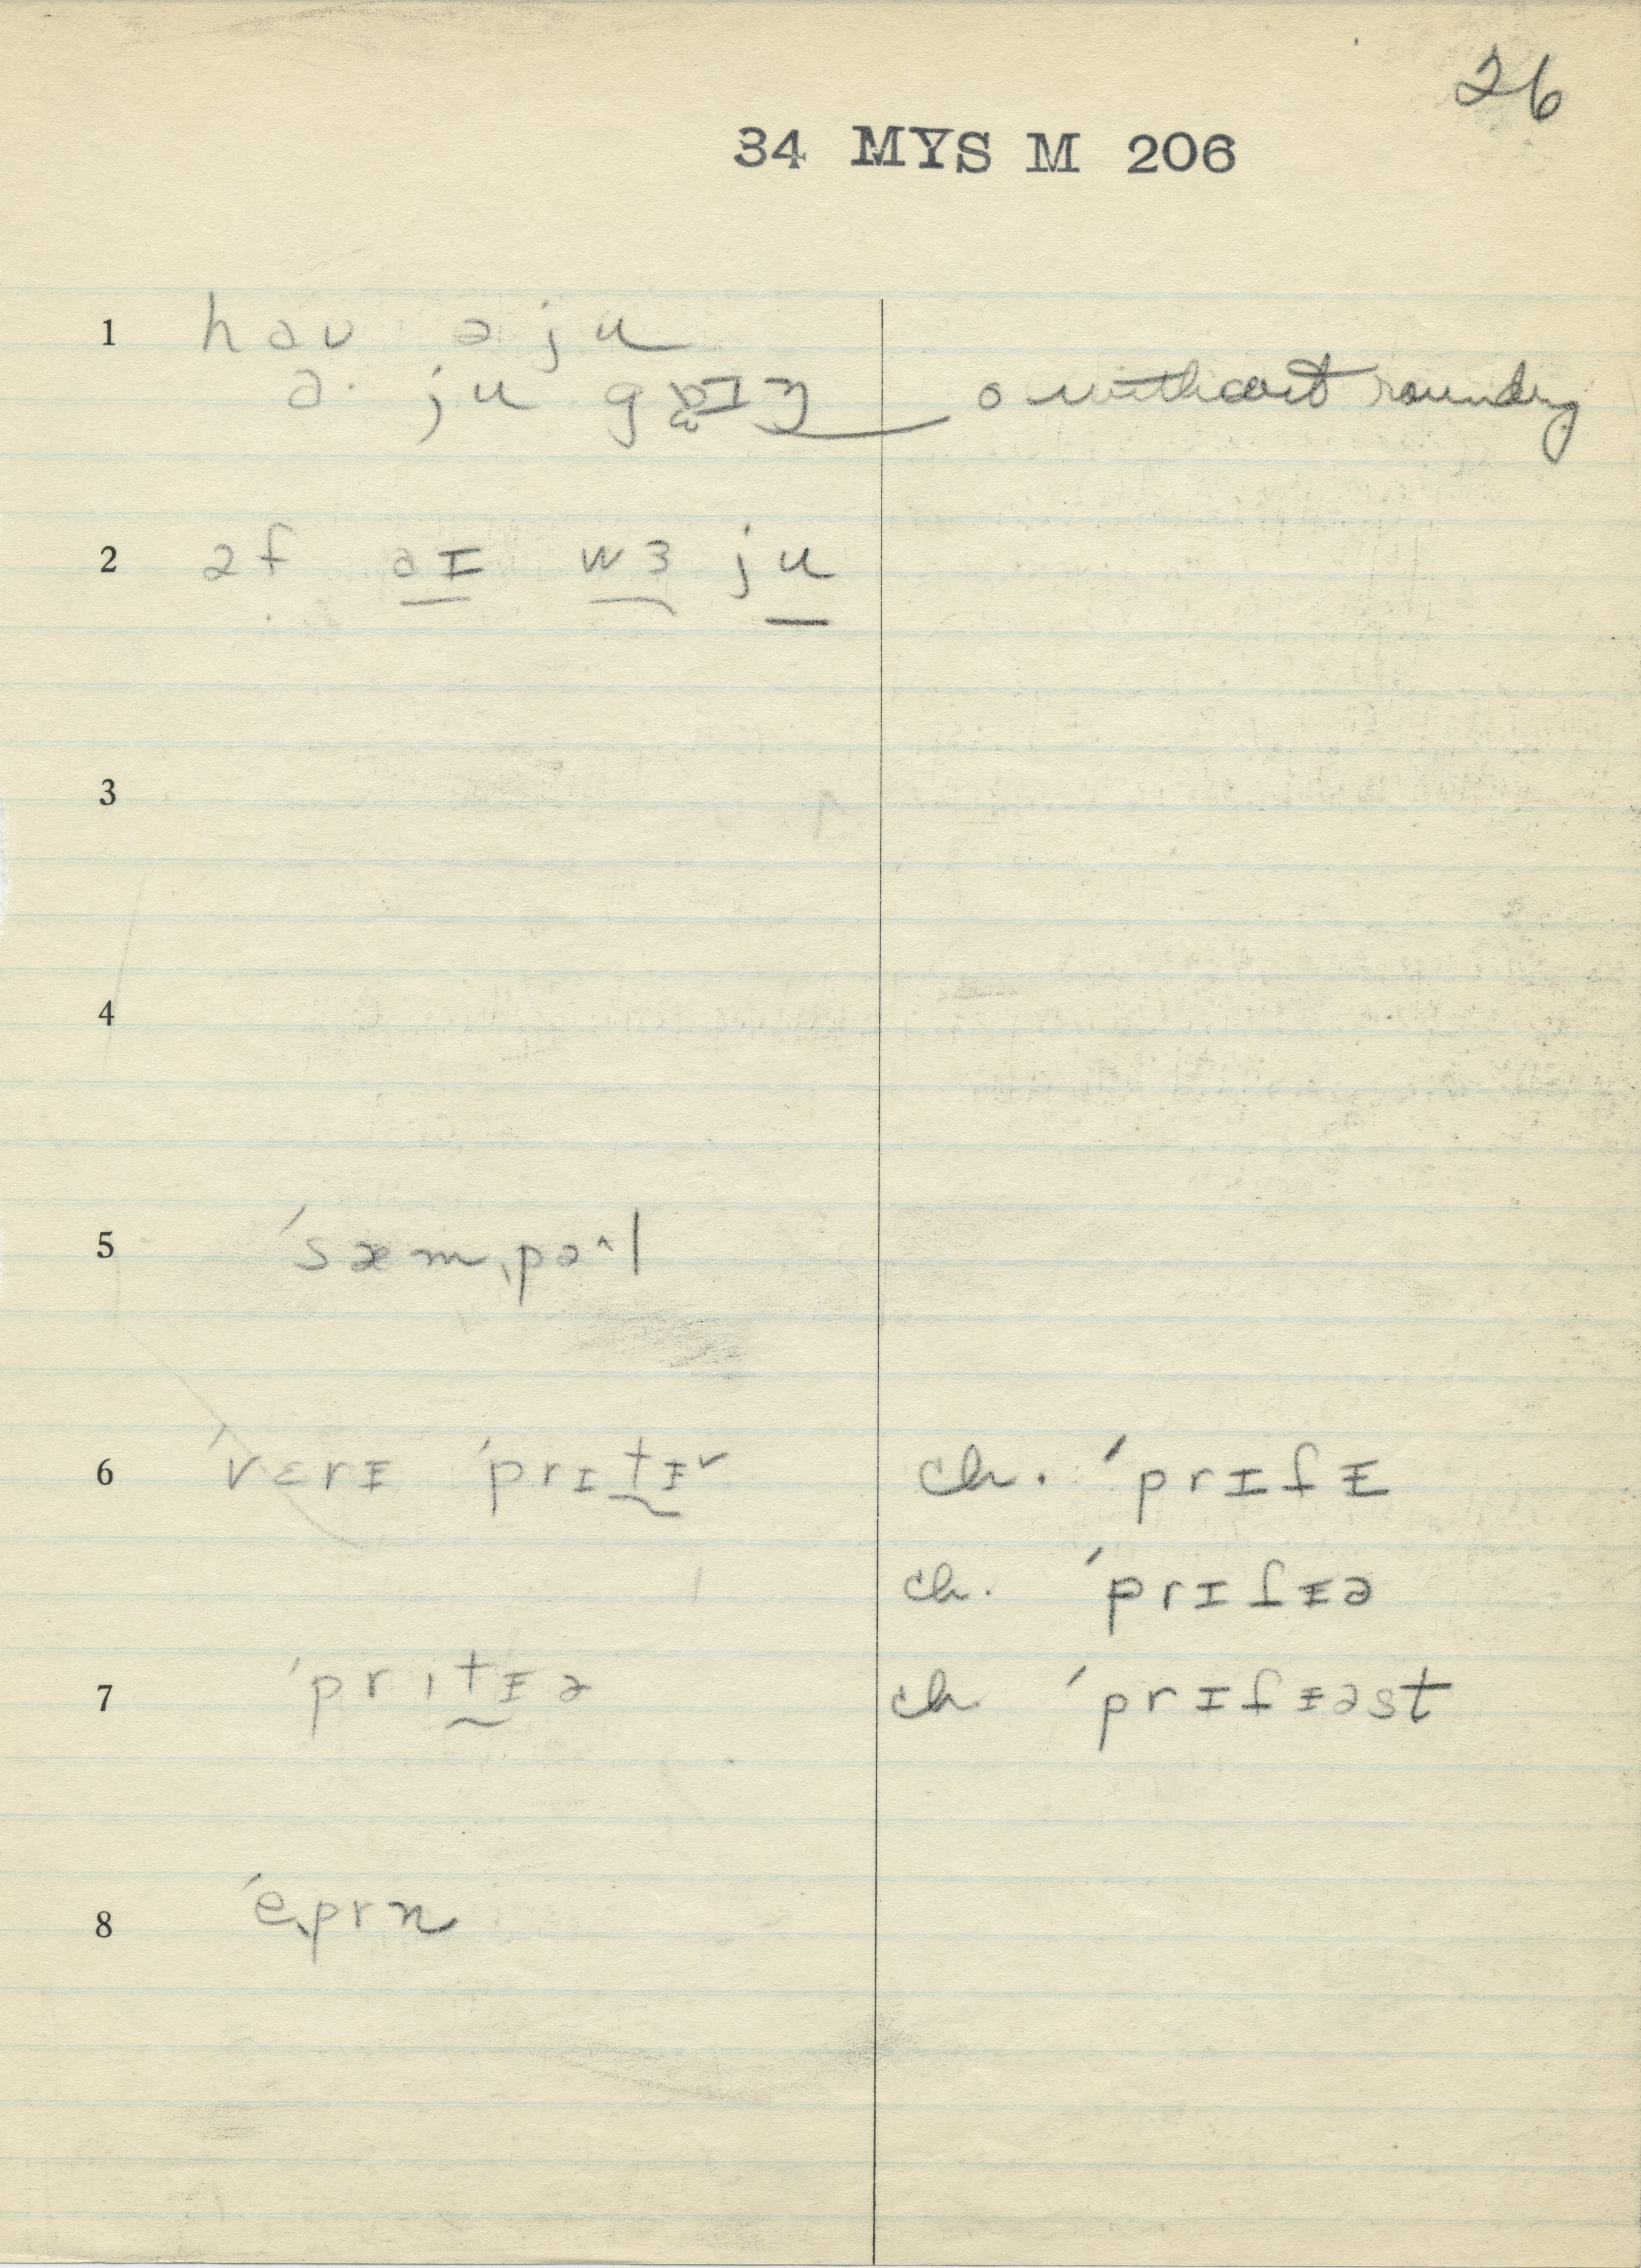 26
34 MYS M 206
1 haʊ ə ju
ə· ju goɪŋ o without rounding
2 əf əɪ wɜ ju
3
4
5 ˈsæmˌpə˄l
6 ˈvɛrᵻ ˈprɪt̰ᵻ˅ ch. ˈprɪfᵻ
ch. ˈprɪfᵻə
7 ˈprɪt̰ᵻə ch ˈprɪfᵻəst
8 ˈeˌprn